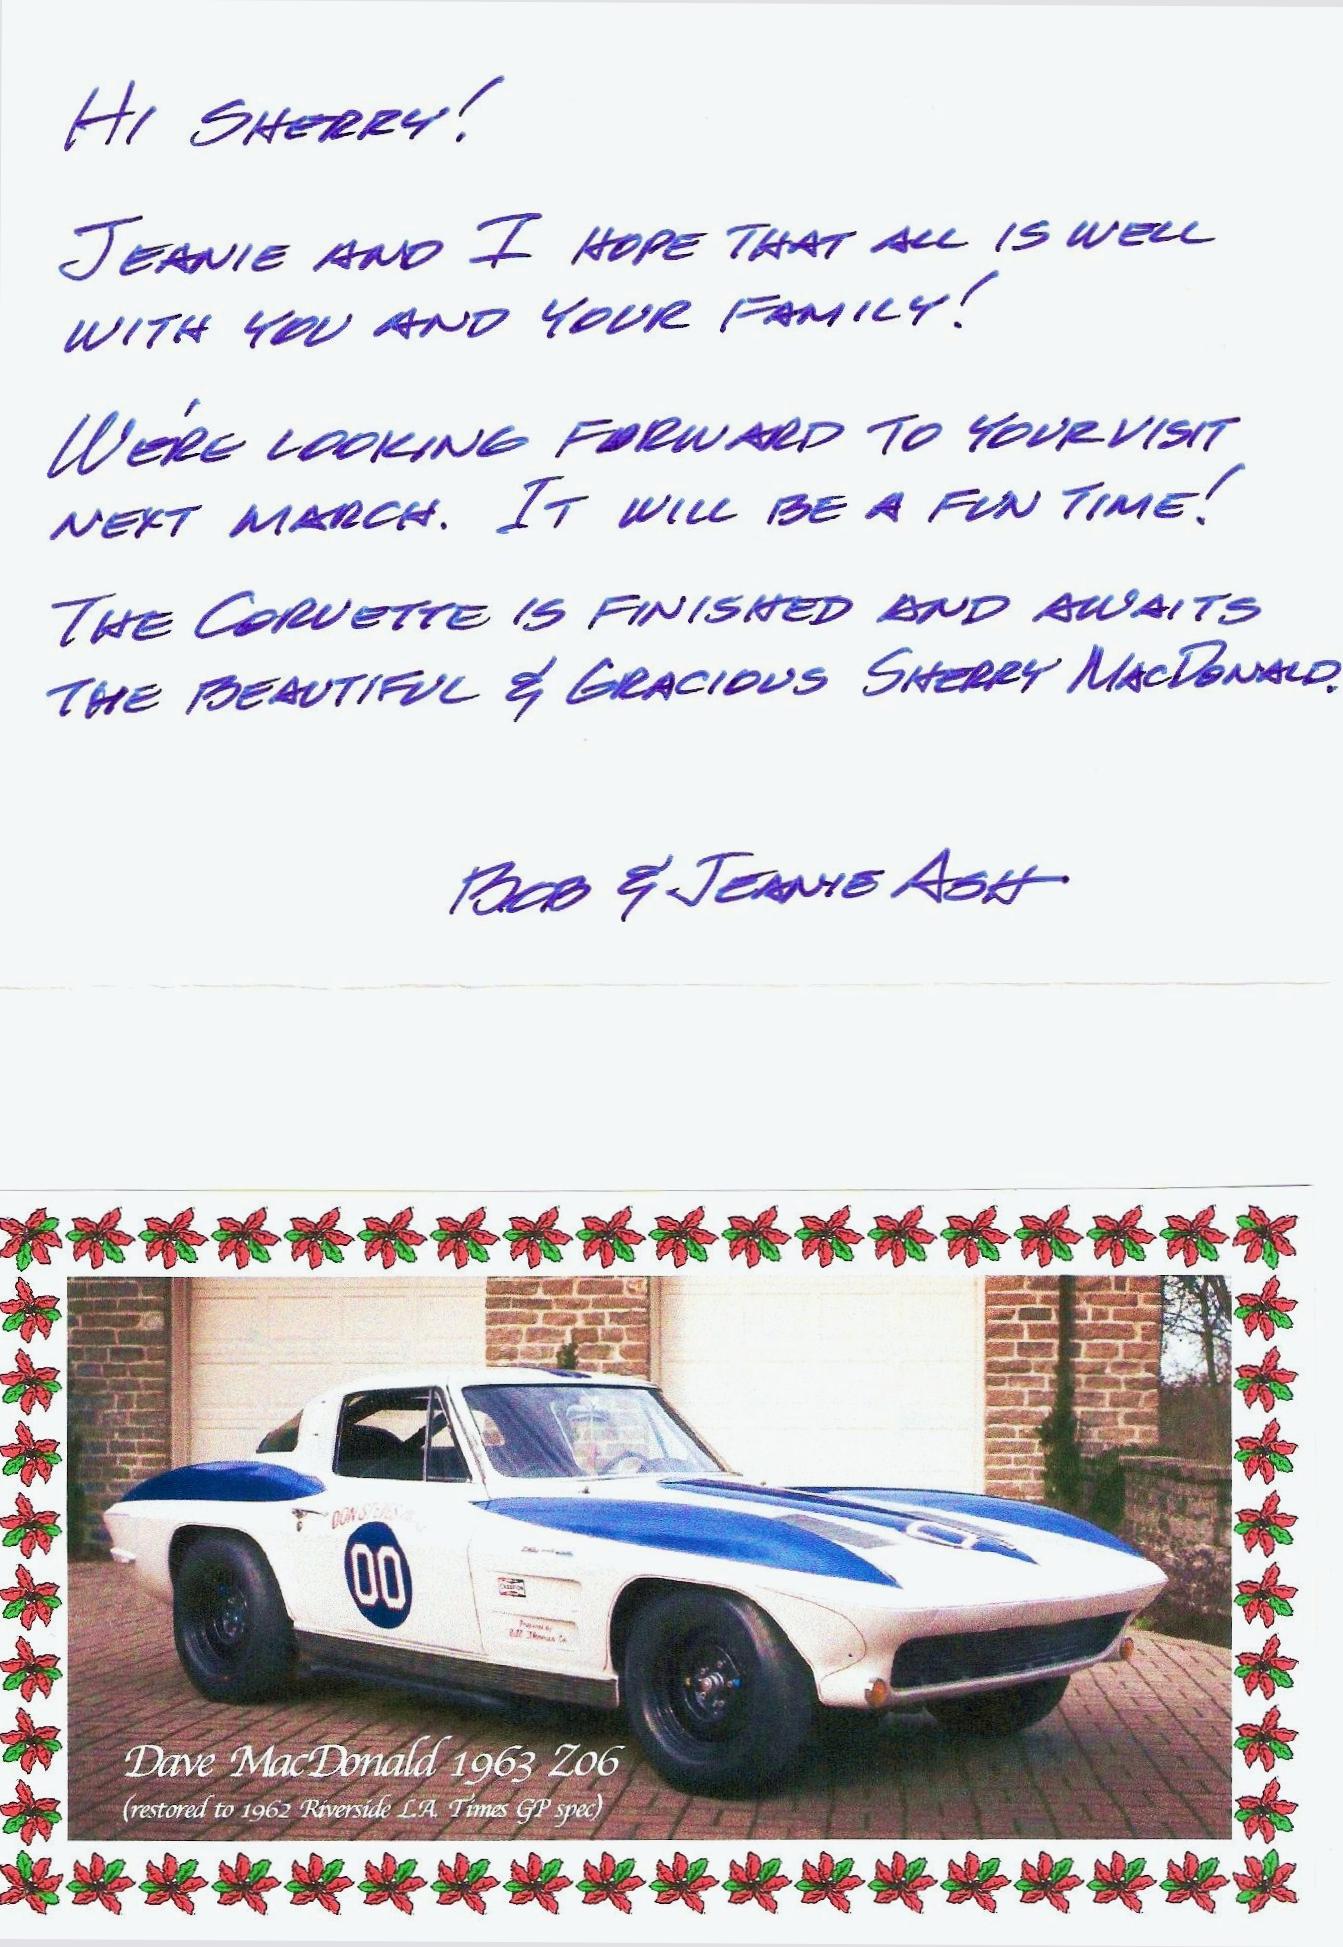 Hi Sherry!
Jeanie and I hope that all is well
with you and your family!
We're looking forward to your visit
next March. It will be a fun time!
The Corvette is finished and awaits
the beautiful & gracious Sherry MacDonald.
Bob & Jeanie Ash
DON STEVES
00
CHAMPION
Prepared by
Bill Thomas Co.
Dave MacDonald 1963 Z06
(restored to 1962 Riverside L.A. Times GP spec)